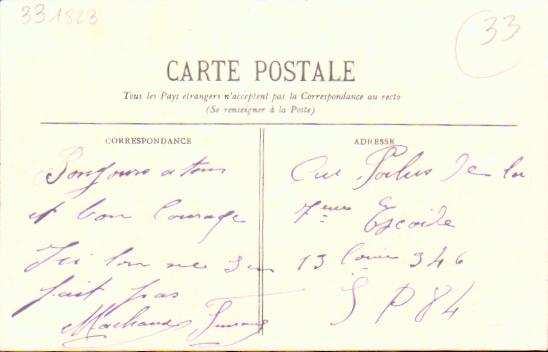 33 1823
33
CARTE POSTALE
Tous les Pays étrangers n'acceptent pas la Correspondance au recto
(Se renseigner à la Poste)
CORRESPONDANCE
Bonjours a tous
et bon Courage
Ici lon ne s'en
fait pas
ADRESSE
Aux Poilus de la
7eme Escoide
13 Comie 346
S P 84